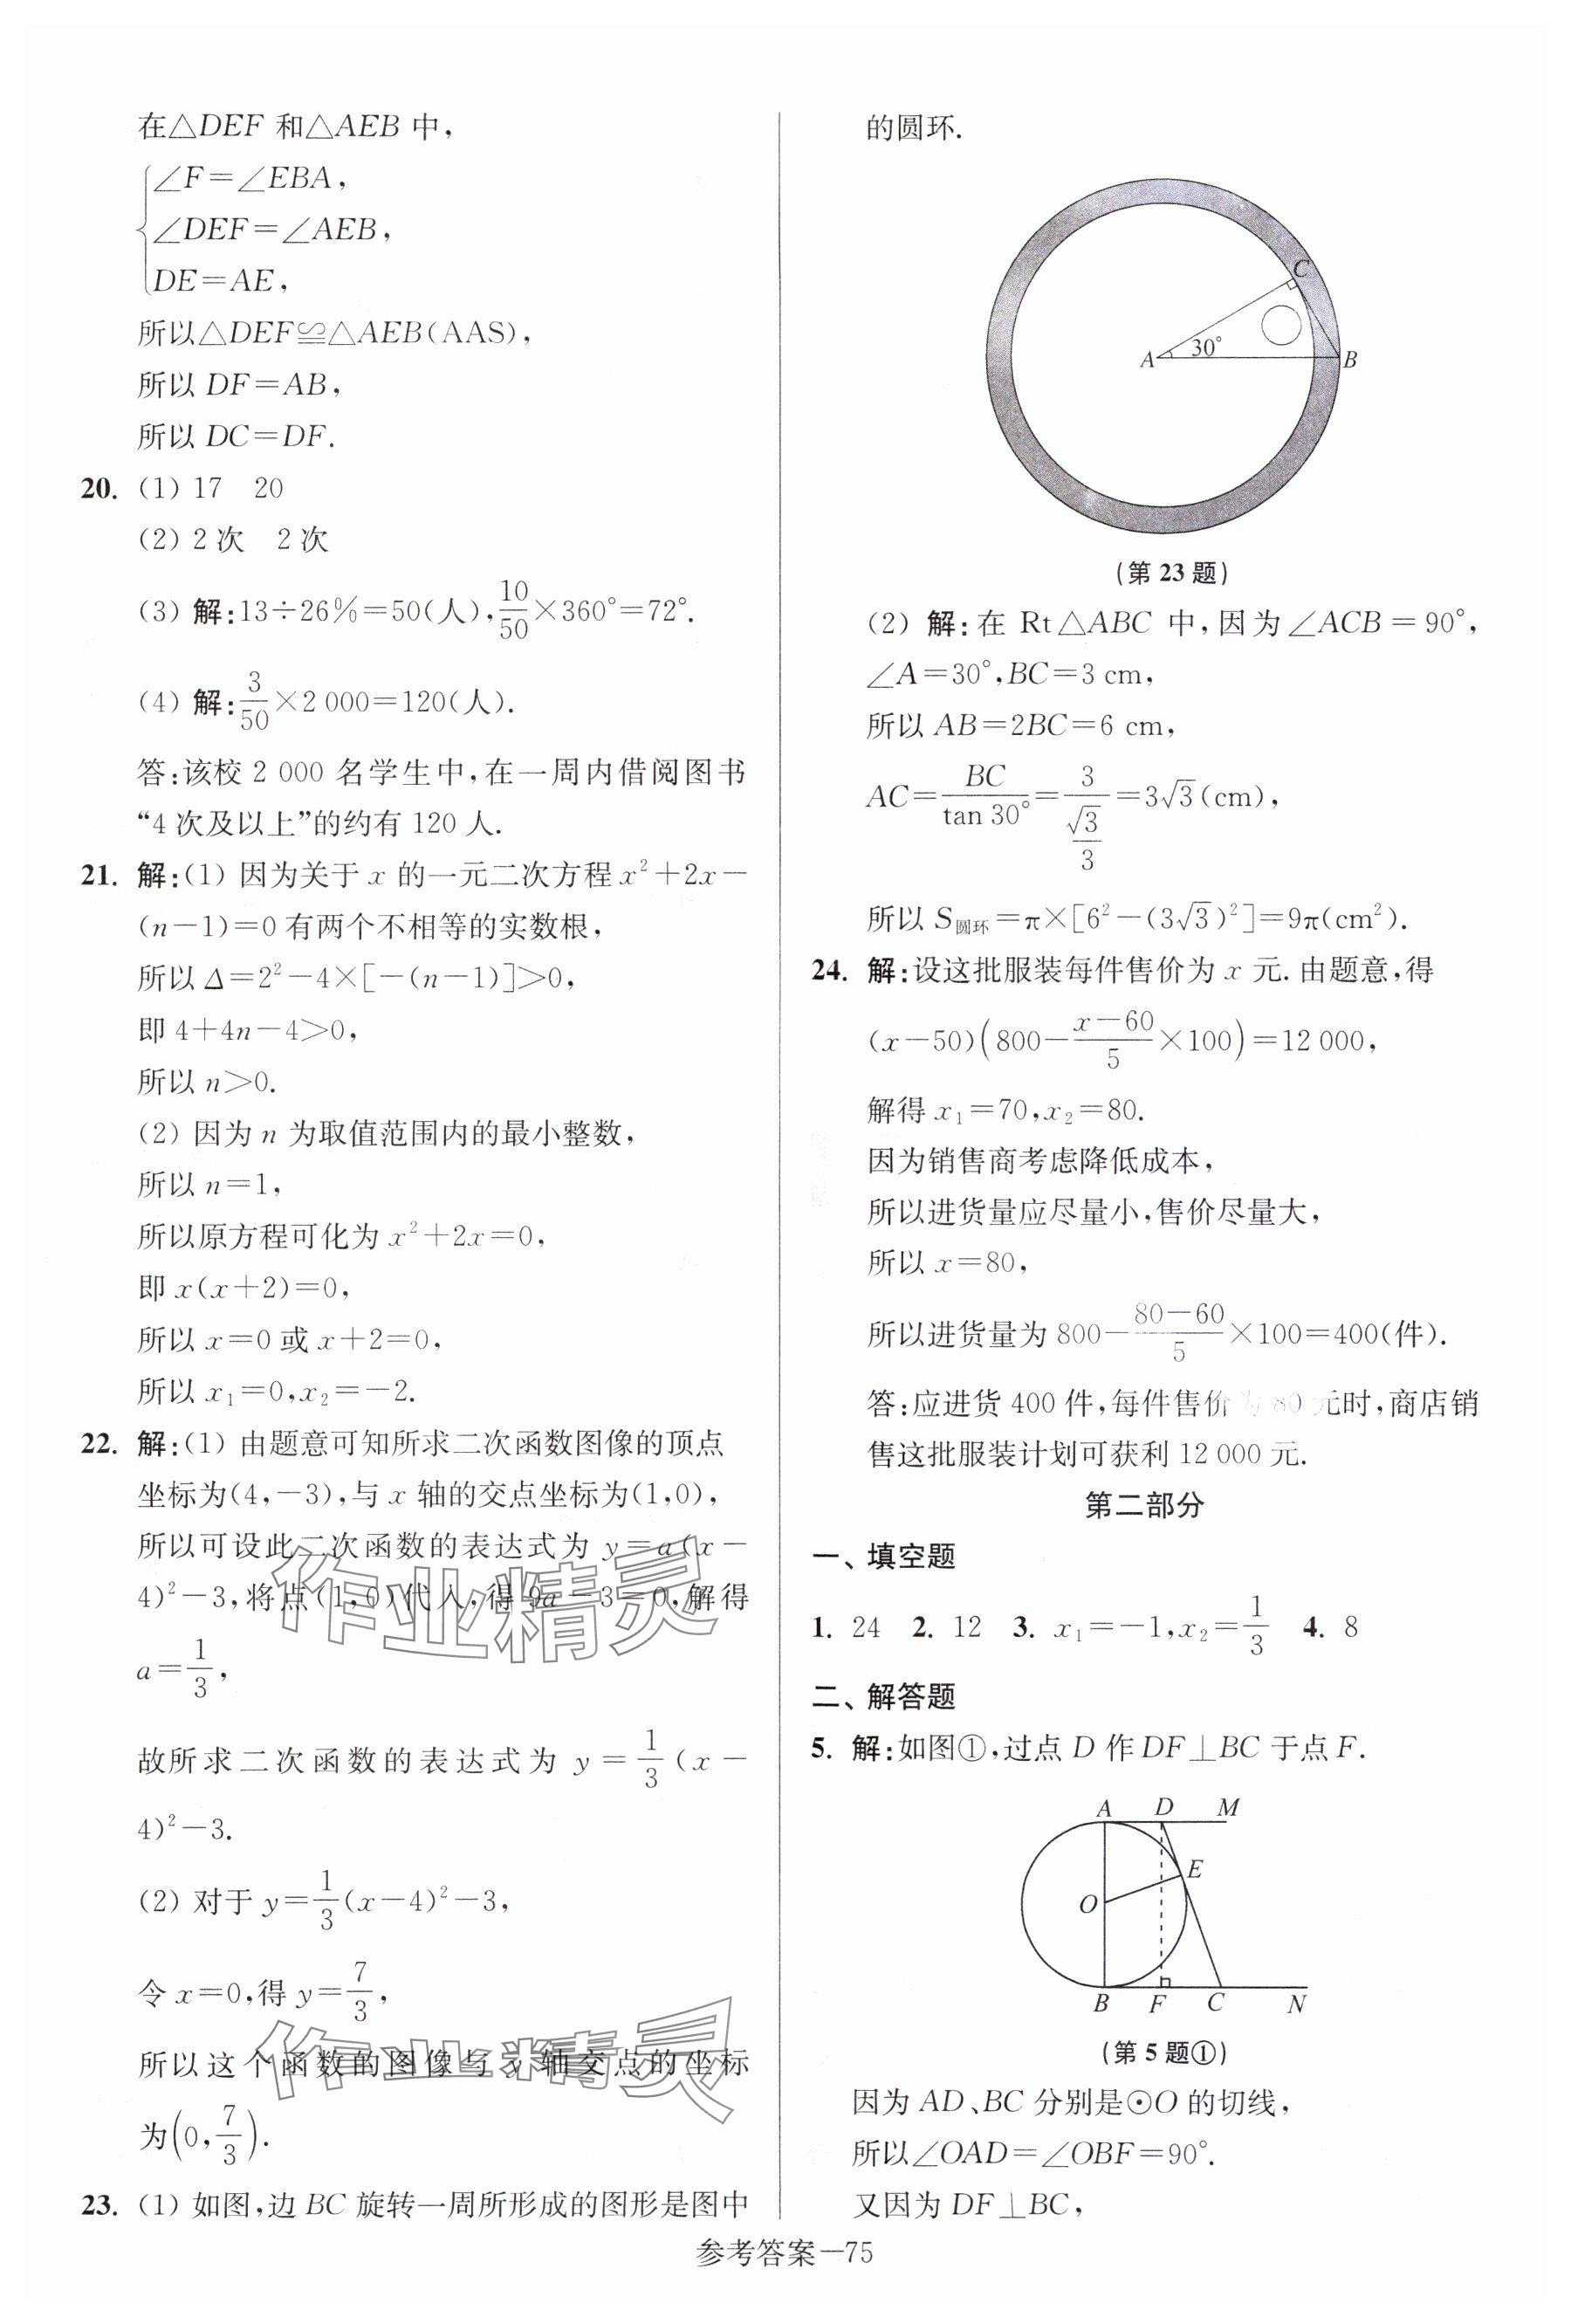 在△DEF 和△AEB 中,
∠F=∠EBA,
∠DEF=∠AEB,
DE=AE,
所以△DEF≌△AEB(AAS),
所以 DF=AB,
所以 DC=DF.
20. (1) 17 20
(2) 2次 2次
(3) 解:13÷26%=50(人),10/50×360°=72°.
(4) 解:3/50×2 000=120(人).
答:该校 2 000 名学生中,在一周内借阅图书
“4 次及以上”的约有 120 人.
21. 解:(1) 因为关于 x 的一元二次方程 x²+2x-
(n-1)=0 有两个不相等的实数根,
所以 Δ=2²-4×[-(n-1)]>0,
即 4+4n-4>0,
所以 n>0.
(2) 因为 n 为取值范围内的最小整数,
所以 n=1,
所以原方程可化为 x²+2x=0,
即 x(x+2)=0,
所以 x=0 或 x+2=0,
所以 x₁=0,x₂=-2.
22. 解:(1) 由题意可知所求二次函数图像的顶点
坐标为(4,-3),与 x 轴的交点坐标为(1,0),
所以可设此二次函数的表达式为 y=a(x-
4)²-3,将点(1,0)代入,得 9a-3=0,解得
a=1/3,
故所求二次函数的表达式为 y=1/3(x-
4)²-3.
(2) 对于 y=1/3(x-4)²-3,
令 x=0,得 y=7/3,
所以这个函数的图像与 y 轴交点的坐标
为(0,7/3).
23. (1) 如图,边 BC 旋转一周所形成的图形是图中
作业精灵
作业精灵
的圆环.
C
A 30° B
(第 23 题)
(2) 解:在 Rt△ABC 中,因为∠ACB=90°,
∠A=30°,BC=3 cm,
所以 AB=2BC=6 cm,
AC=BC/tan 30°=3/(√3/3)=3√3(cm),
所以 S圆环=π×[6²-(3√3)²]=9π(cm²).
24. 解:设这批服装每件售价为 x 元.由题意,得
(x-50)(800-(x-60)/5×100)=12 000,
解得 x₁=70,x₂=80.
因为销售商考虑降低成本,
所以进货量应尽量小,售价尽量大,
所以 x=80,
所以进货量为 800-(80-60)/5×100=400(件).
答:应进货 400 件,每件售价为 80 元时,商店销
售这批服装计划可获利 12 000 元.
第二部分
一、填空题
1. 24 2. 12 3. x₁=-1,x₂=1/3 4. 8
二、解答题
5. 解:如图①,过点 D 作 DF⊥BC 于点 F.
A D M
E
O
B F C N
(第 5 题①)
因为 AD、BC 分别是⊙O 的切线,
所以∠OAD=∠OBF=90°.
又因为 DF⊥BC,
参考答案—75